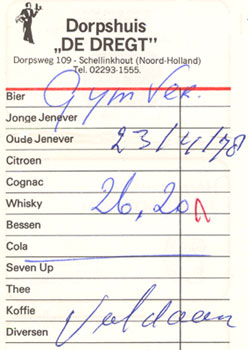 Dorpshuis
„DE DREGT"
Dorpsweg 109 - Schellinkhout (Noord-Holland)
Tel. 02293-1555.
Bier Gym Ver.
Jonge Jenever
Oude Jenever 23/4/78
Citroen
Cognac
Whisky 26,20
Bessen
Cola
Seven Up
Thee
Koffie
Diversen Voldaan